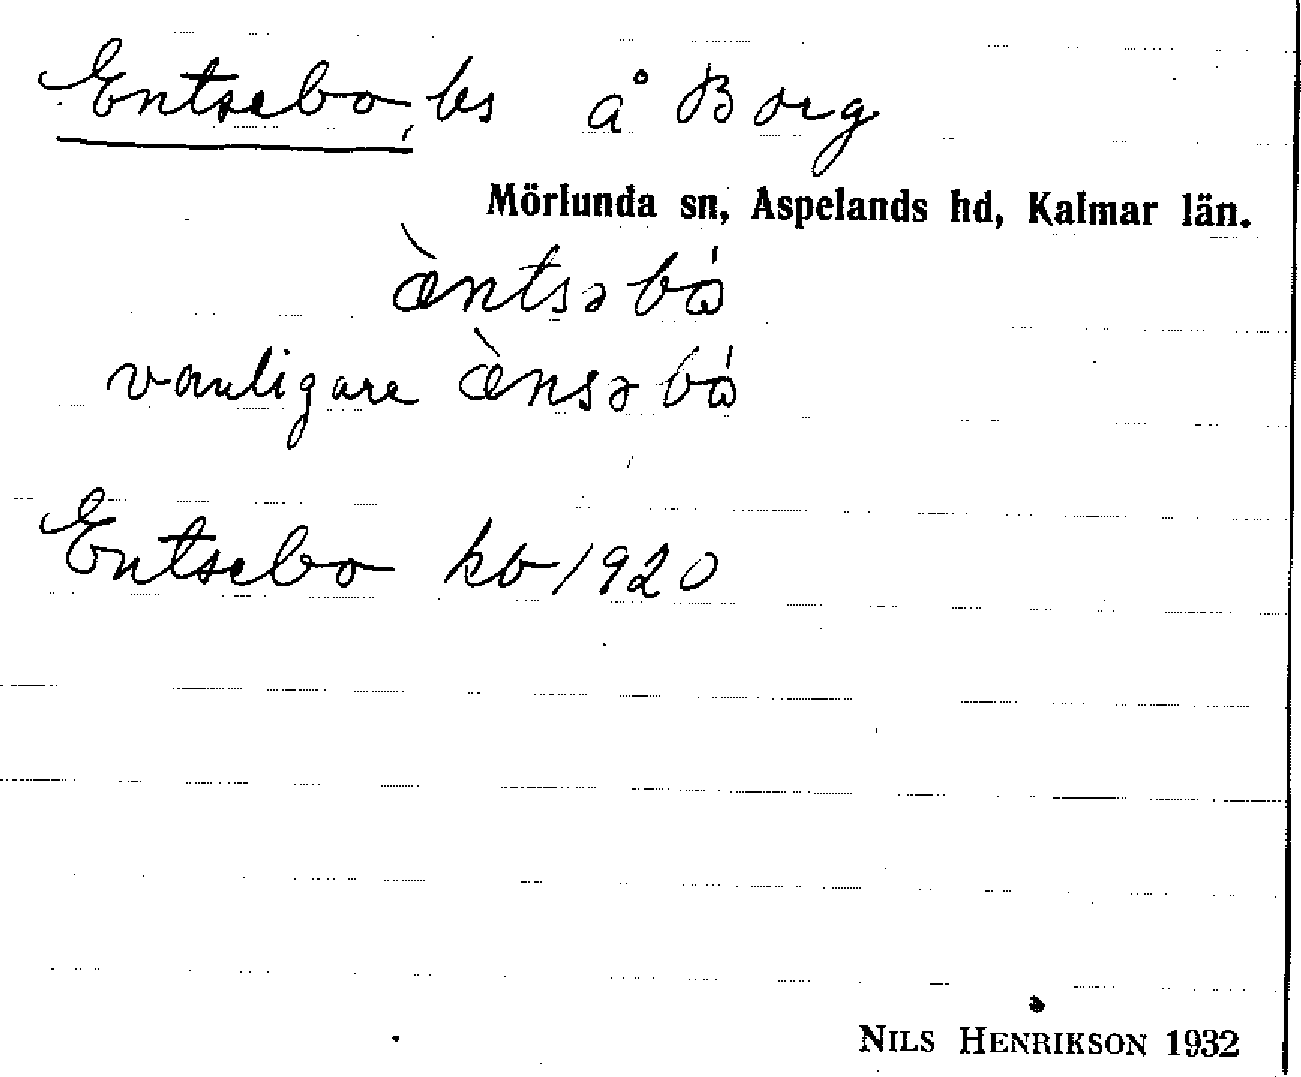 Entsebo, bs å Borg
Mörlunda sn, Aspelands hd, Kalmar län.
æ̀ntsəbó
vanligare æ̀nsəbó
Entsebo kb 1920
NILS HENRIKSON 1932